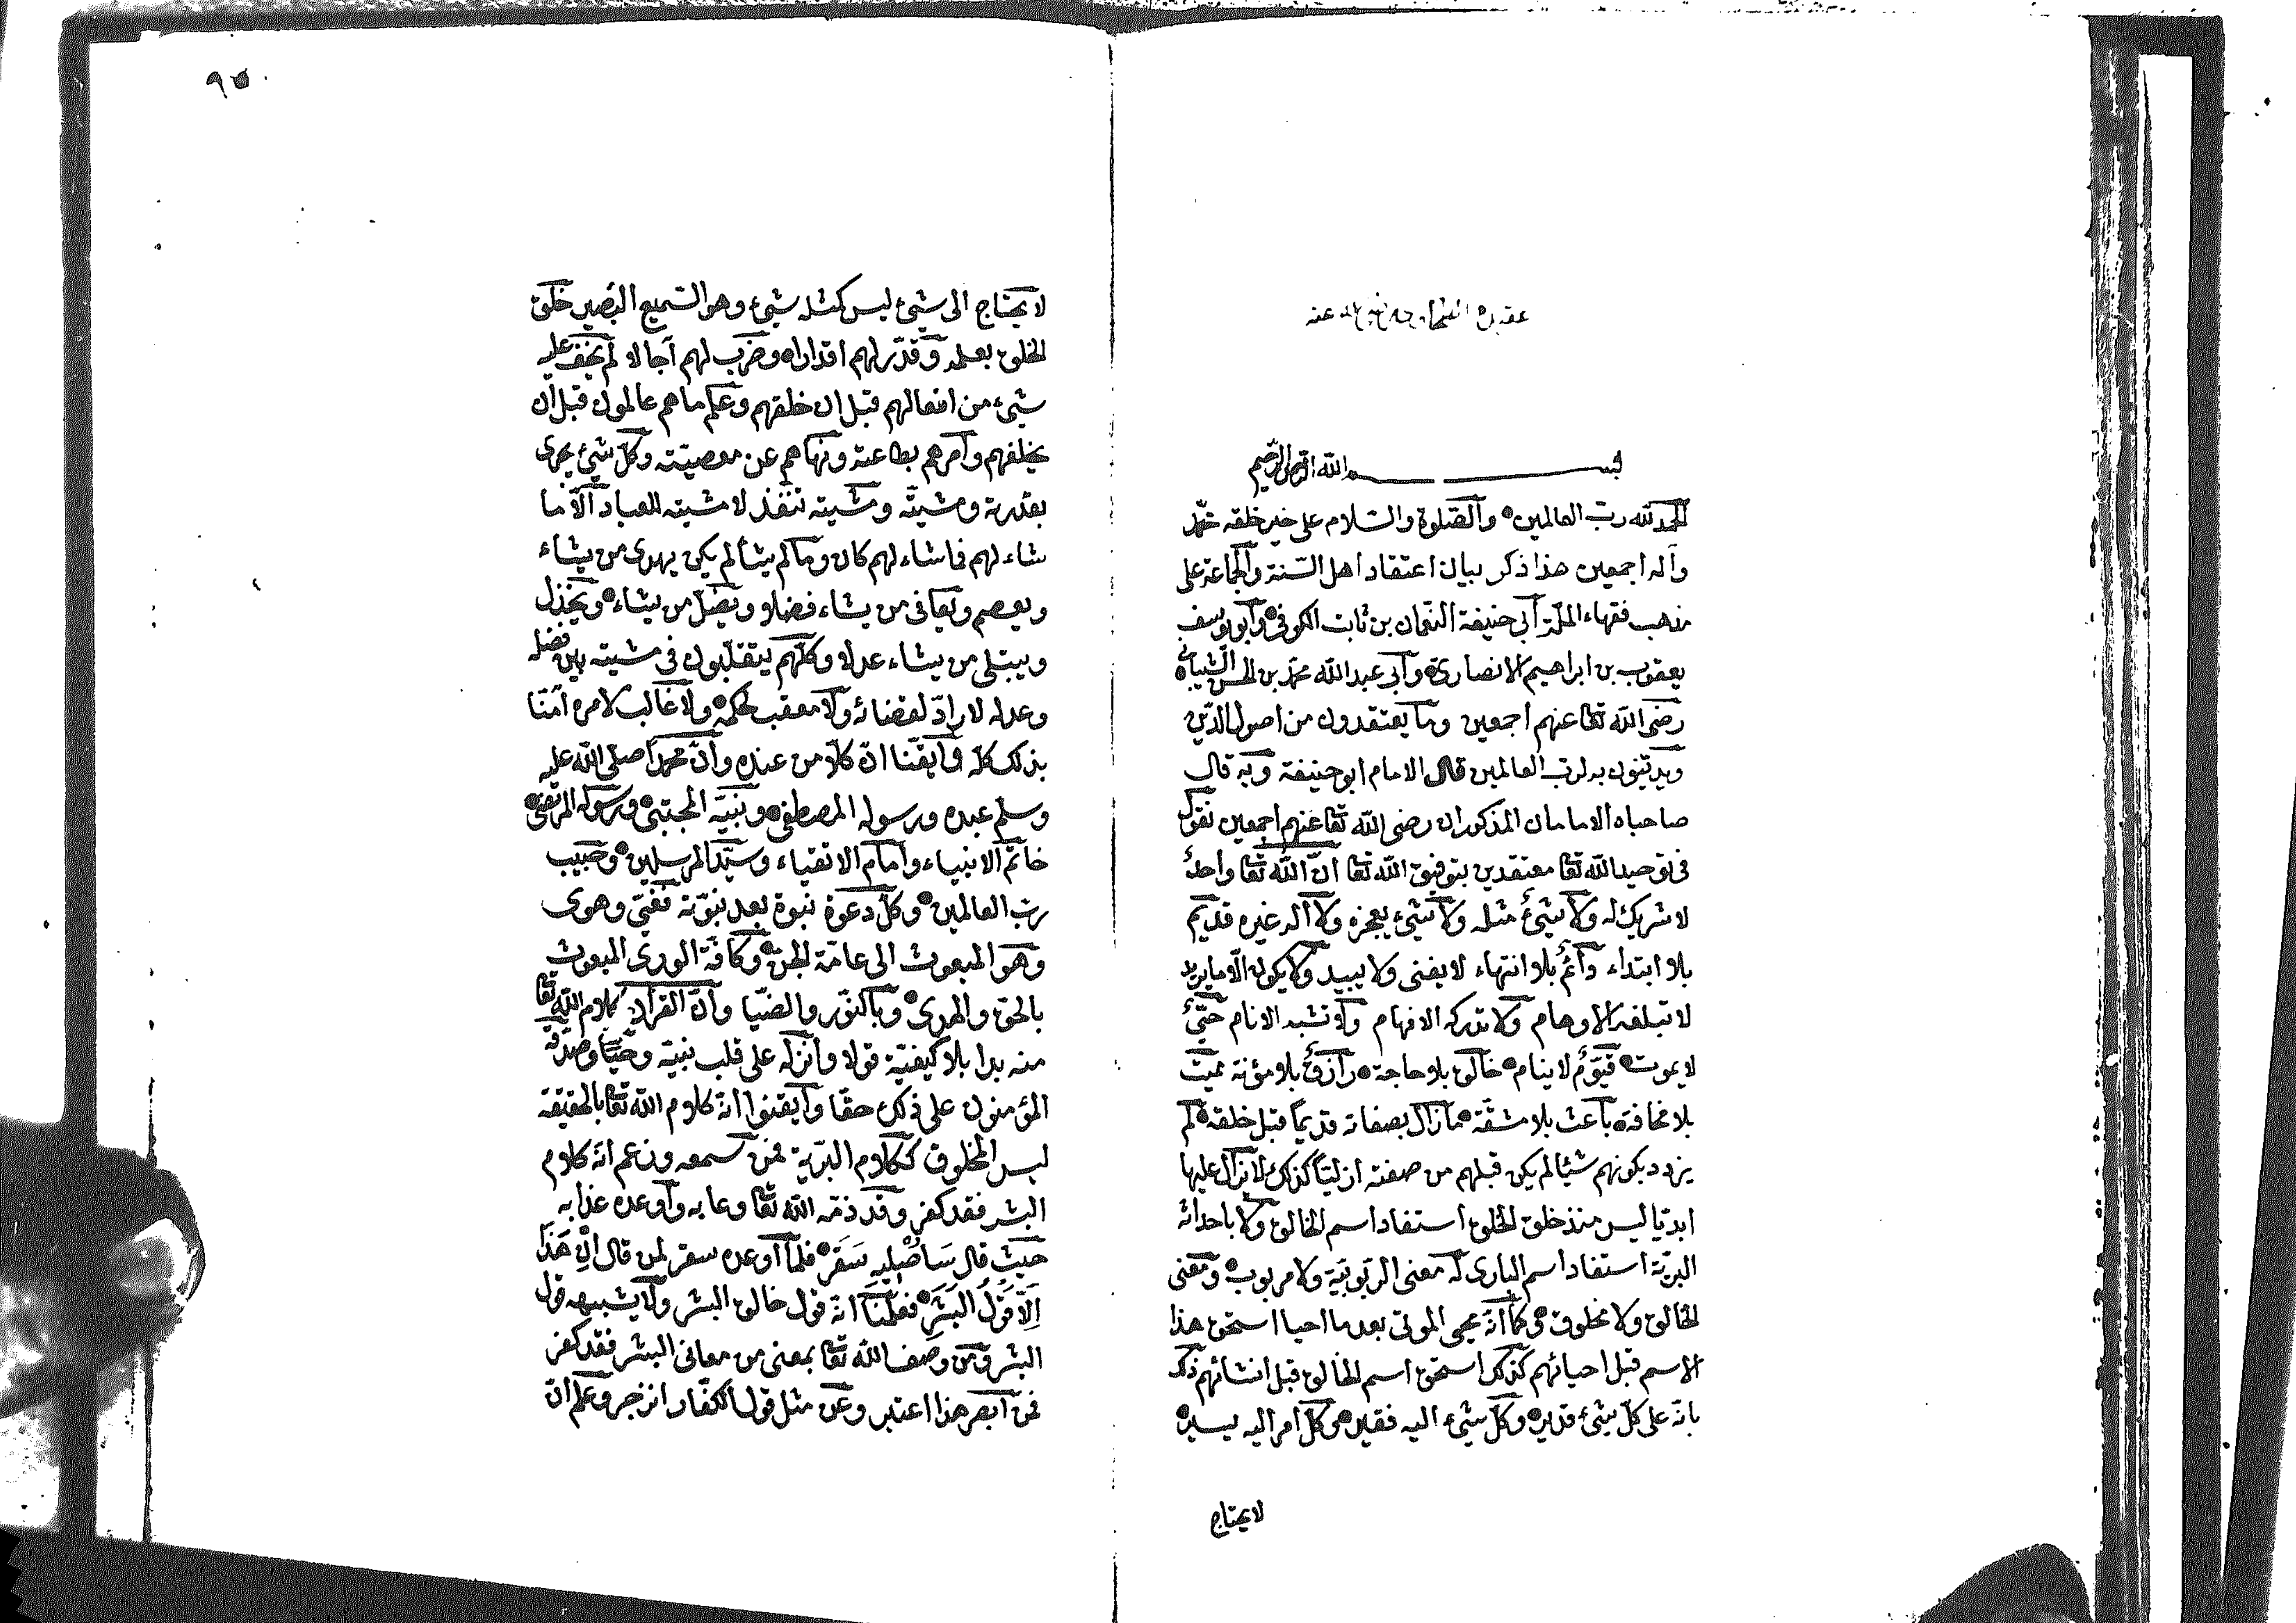 عقيدة الطحاوي رضي الله عنه
بسم الله الرحمن الرحيم
الحمد لله رب العالمين والصلوة والسلام على خير خلقه محمد
وآله اجمعين هذا ذكر بيان اعتقاد اهل السنة والجماعة على
مذهب فقهاء الملة أبي حنيفة النعمان بن ثابت الكوفي وأبو يوسف
يعقوب بن ابراهيم الانصاري وأبي عبد الله محمد بن الحسن الشيباني
رضى الله تعا عنهم اجمعين وما يعتقدون من اصول الدين
ويدينون به لرب العالمين قال الامام ابو حنيفة وبه قال
صاحباه الامامان المذكوران رضى الله تعا عنهم اجمعين نقول
فى توحيد الله تعا معتقدين بتوفيق الله تعا ان الله تعا واحد
لا شريك له ولا شئ مثله ولا شئ يعجزه ولا اله غيره قديم
بلا ابتداء دائم بلا انتهاء لا يفنى ولا يبيد ولا يكون الا ما يريد
لا تبلغه الاوهام ولا تدركه الافهام ولا تشبه الانام حي
لا يموت قيوم لا ينام خالق بلا حاجة رازق بلا مؤنة مميت
بلا مخافة باعث بلا مشقة ما زال بصفاته قديما قبل خلقه لم
يزدد بكونهم شيئا لم يكن قبلهم من صفته ازليا كذلك لا يزال عليها
ابديا ليس منذ خلق الخلق استفاد اسم الخالق ولا باحداثه
البرية استفاد اسم البارى له معنى الربوبية ولا مربوب ومعنى
الخالق ولا مخلوق وكما انه محيى الموتى بعد ما احيا استحق هذا
الاسم قبل احيائهم كذلك استحق اسم الخالق قبل انشائهم ذلك
بانه على كل شئ قدير وكل شئ اليه فقير وكل أمر اليه يسير
لا يحتاج
٩٥
لا يحتاج الى شئ ليس كمثله شئ وهو السميع البصير خلق
الخلق بعلمه وقدر لهم اقدارا وضرب لهم آجالا لم يخف عليه
شئ من افعالهم قبل ان خلقهم وعلم ما هم عاملون قبل أن
يخلقهم وأمرهم بطاعته ونهاهم عن معصيته وكل شئ يجرى
بقدرته ومشيته ومشيته تنفذ لا مشيته للعباد الا ما
شاء لهم فما شاء لهم كان وما لم يشأ لم يكن يهدى من يشاء
ويعصم ويعافى من يشاء فضلا ويضل من يشاء ويخذل
ويبتلى من يشاء عدلا وكلهم يتقلبون فى مشيته بين فضله
وعدله لا راد لقضائه ولا معقب لحكمه ولا غالب لامره آمنا
بذلك كله وأيقنا ان كلا من عنده وان محمدا صلى الله عليه
وسلم عبده ورسوله المصطفى ونبيه المجتبى ورسوله المرتضى
خاتم الانبياء وامام الاتقياء وسيد المرسلين وحبيب
رب العالمين وكل دعوة نبوة بعد نبوته فغي وهوى
وهو المبعوث الى عامة الجن وكافة الورى المبعوث
بالحق والهدى وبالنور والضيا وأن القرآن كلام الله تعا
منه بدا بلا كيفية قولا وأنزله على قلب نبيه وحيا وصدقه
المؤمنون على ذلك حقا وأيقنوا انه كلام الله تعا بالحقيقة
ليس المخلوق ككلام البرية فمن سمعه وزعم انه كلام
البشر فقد كفر وقد ذمه الله تعا وعابه وأوعده عذابه
حيث قال سَاُصْلِيهِ سَقَرَ فلما أوعد سقر لمن قال اِنْ هَذَا
اِلَّا قَوْلُ البَشَرِ فعلمنا انه قول خالق البشر ولا يشبهه قول
البشر ومن وصف الله تعا بمعنى من معانى البشر فقد كفر
فمن أبصر هذا اعتبر وعن مثل قول الكفار انزجر وعلم ان